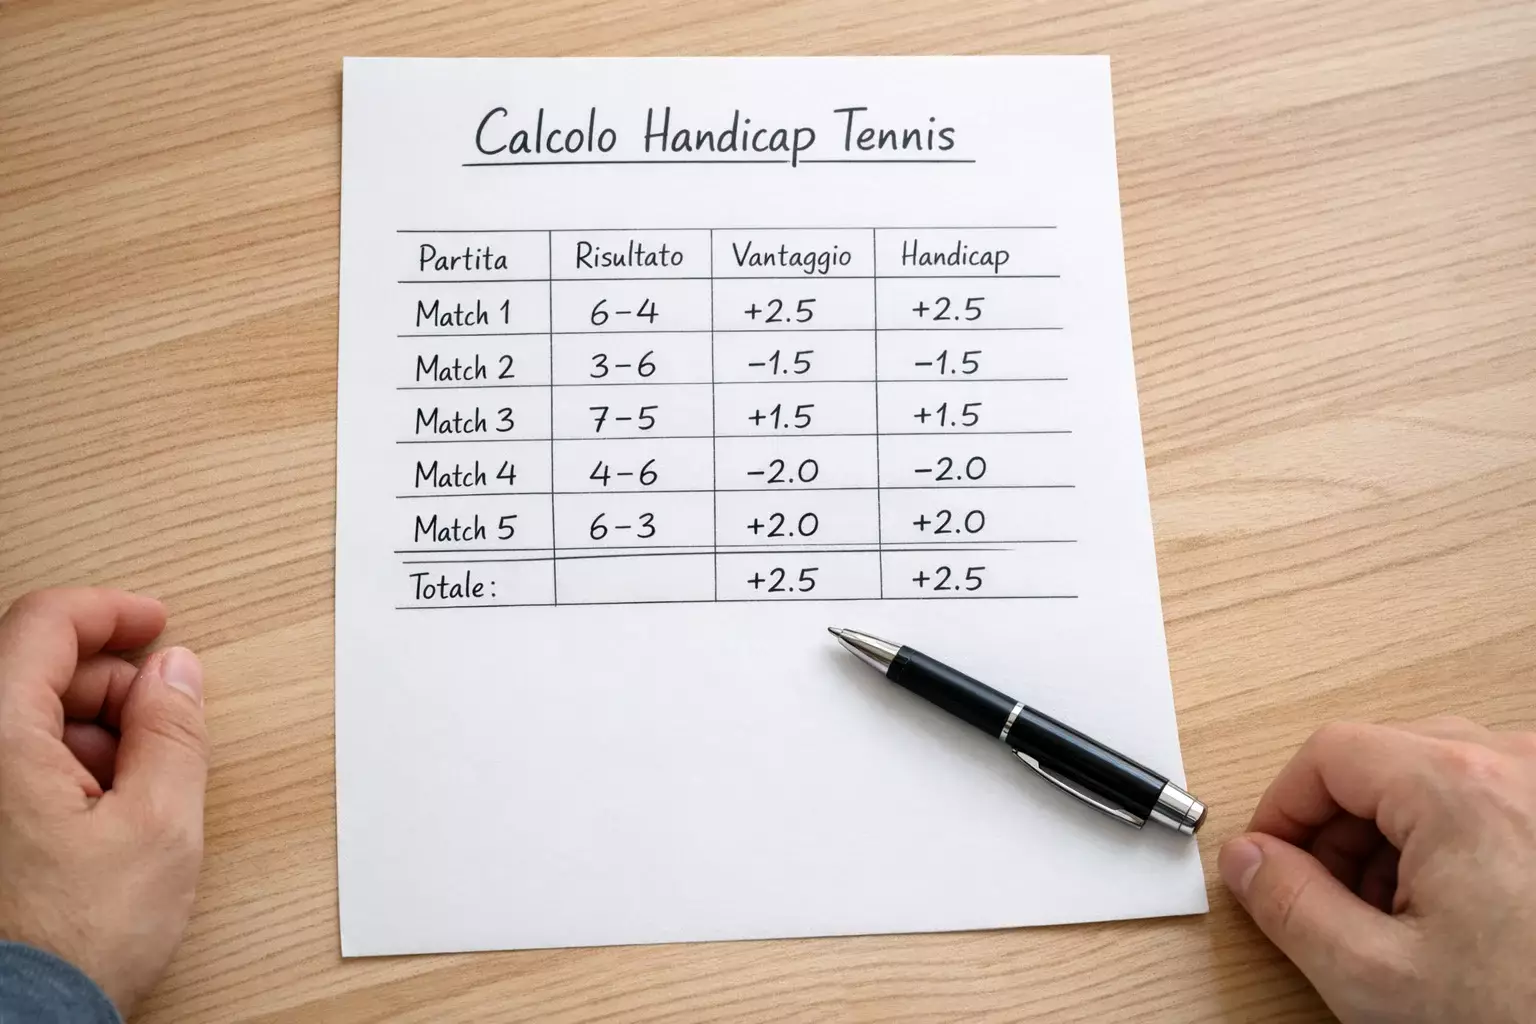 Calcolo Handicap Tennis
Partita Risultato Vantaggio Handicap
Match 1 6-4 +2.5 +2.5
Match 2 3-6 -1.5 -1.5
Match 3 7-5 +1.5 +1.5
Match 4 4-6 -2.0 -2.0
Match 5 6-3 +2.0 +2.0
Totale: +2.5 +2.5